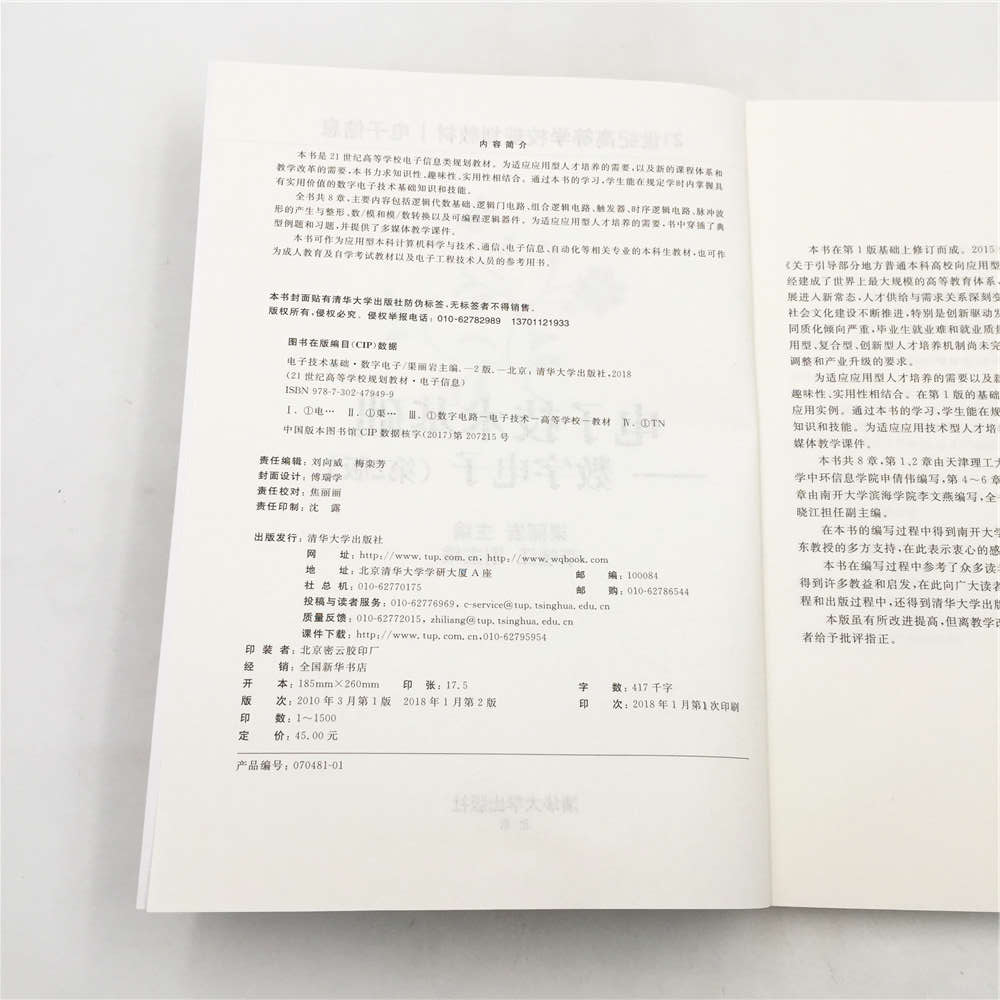 内容简介
本书是21世纪高等学校电子信息类规划教材。为适应应用型人才培养的需要，以及新的课程体系和
教学改革的需要，本书力求知识性、趣味性、实用性相结合。通过本书的学习，学生能在规定学时内掌握具
有实用价值的数字电子技术基础知识和技能。
全书共8章，主要内容包括逻辑代数基础、逻辑门电路、组合逻辑电路、触发器、时序逻辑电路、脉冲波
形的产生与整形、数/模和模/数转换以及可编程逻辑器件。为适应应用型人才培养的需要，书中穿插了典
型例题和习题，并提供了多媒体教学课件。
本书可作为应用型本科计算机科学与技术、通信、电子信息、自动化等相关专业的本科生教材，也可作
为成人教育及自学考试教材以及电子工程技术人员的参考用书。
本书封面贴有清华大学出版社防伪标签，无标签者不得销售。
版权所有，侵权必究。侵权举报电话：010-62782989 13701121933
图书在版编目(CIP)数据
电子技术基础·数字电子/渠丽岩主编.—2版.—北京：清华大学出版社，2018
（21世纪高等学校规划教材·电子信息）
ISBN 978-7-302-47949-9
Ⅰ.①电… Ⅱ.①渠… Ⅲ.①数字电路－电子技术－高等学校－教材 Ⅳ.①TN
中国版本图书馆CIP数据核字(2017)第207215号
责任编辑：刘向威 梅栾芳
封面设计：傅瑞学
责任校对：焦丽丽
责任印制：沈 露
出版发行：清华大学出版社
网 址：http://www.tup.com.cn，http://www.wqbook.com
地 址：北京清华大学学研大厦A座 邮 编：100084
社 总 机：010-62770175 邮 购：010-62786544
投稿与读者服务：010-62776969，c-service@tup.tsinghua.edu.cn
质量反馈：010-62772015，zhiliang@tup.tsinghua.edu.cn
课件下载：http://www.tup.com.cn，010-62795954
印 装 者：北京密云胶印厂
经 销：全国新华书店
开 本：185mm×260mm 印 张：17.5 字 数：417千字
版 次：2010年3月第1版 2018年1月第2版 印 次：2018年1月第1次印刷
印 数：1～1500
定 价：45.00元
产品编号：070481-01
本书在第1版基础上修订而成。2015
《关于引导部分地方普通本科高校向应用型
经建成了世界上最大规模的高等教育体系，
展进入新常态，人才供给与需求关系深刻变
社会文化建设不断推进，特别是创新驱动发
同质化倾向严重，毕业生就业难和就业质量
用型、复合型、创新型人才培养机制尚未完
调整和产业升级的要求。
为适应应用型人才培养的需要以及新
趣味性、实用性相结合。在第1版的基础
应用实例。通过本书的学习，学生能在规
知识和技能。为适应应用技术型人才培
媒体教学课件。
本书共8章，第1、2章由天津理工大
学中环信息学院申倩伟编写，第4～6章
章由南开大学滨海学院李文燕编写，全
晓江担任副主编。
在本书的编写过程中得到南开大学
东教授的多方支持，在此表示衷心的感
本书在编写过程中参考了众多读
得到许多教益和启发，在此向广大读者
程和出版过程中，还得到清华大学出版
本版虽有所改进提高，但离教学改
者给予批评指正。